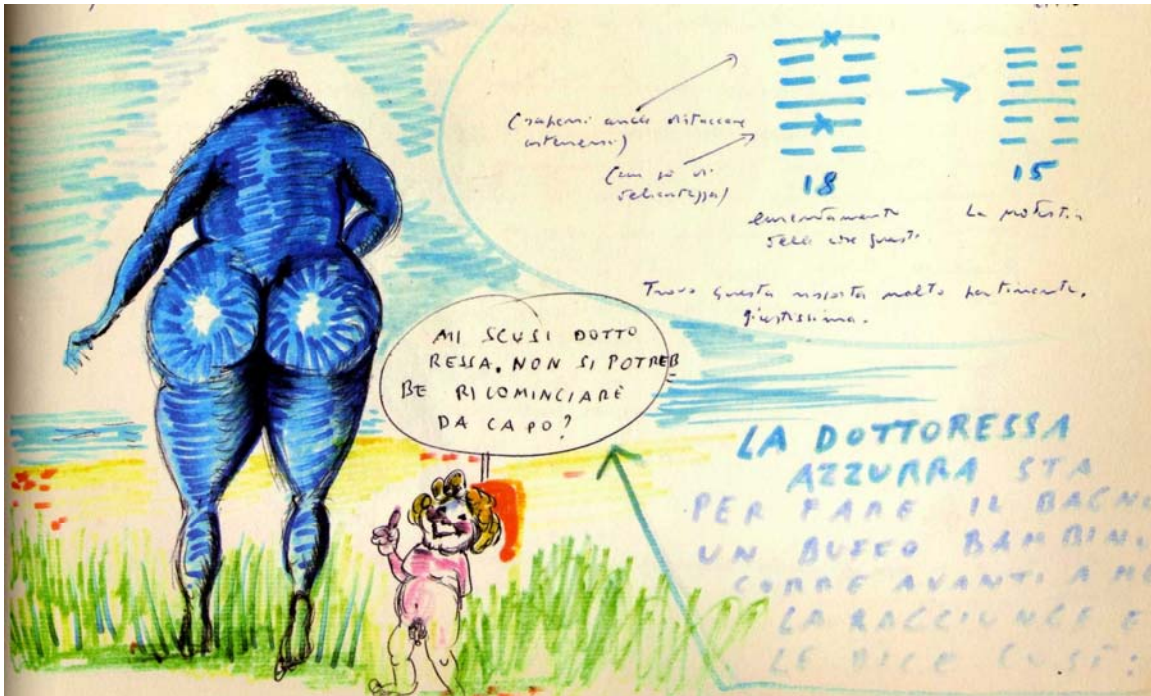 (sapersi anche distaccare
(con più di
delicatezza)
18
15
emendamento
delle cose guaste.
La modestia
Trovo questa risposta molto pertinente,
giustissima.
MI SCUSI DOTTO
RESSA. NON SI POTREB
BE RICOMINCIARE
DA CAPO?
LA DOTTORESSA
AZZURRA STA
PER FARE IL BAGNO
UN BUFFO BAMBIN
CORRE AVANTI A ME
LA RAGGIUNGE E
LE DICE COSÌ: